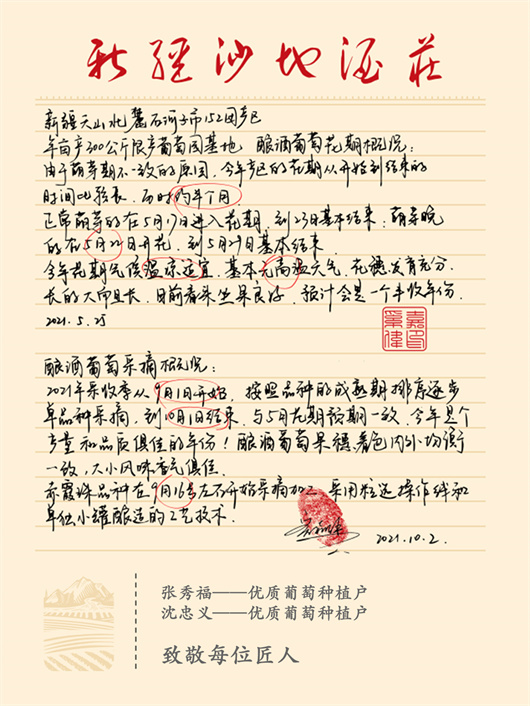 新疆天山北麓石河子市152团产区
年亩产300公斤限产葡萄园基地 酿酒葡萄花期概况:
由于萌芽期不一致的原因,今年产区的花期从开始到结束的
时间比较长,历时约半个月.
正常萌芽的在5月17日进入花期,到23日基本结束.萌芽晚
的在5月22日开花,到5月29日基本结束
今年花期气候温凉适宜,基本无高温天气,花穗发育充分.
长的大而且长.目前看来坐果良好,预计会是一个丰收年份.
2021.5.25
酿酒葡萄采摘概况:
2021年采收季从9月1日开始,按照品种的成熟期排序逐步
单品种采摘,到10月1日结束,与5月花期预期一致.今年是个
产量和品质俱佳的年份!酿酒葡萄果穗着色内外均衡
一致,大小风味香气俱佳.
赤霞珠品种在9月16号左右开始采摘加工,采用粒选操作线和
单位小罐酿造的工艺技术.
2021.10.2.
张秀福——优质葡萄种植户
沈忠义——优质葡萄种植户
致敬每位匠人